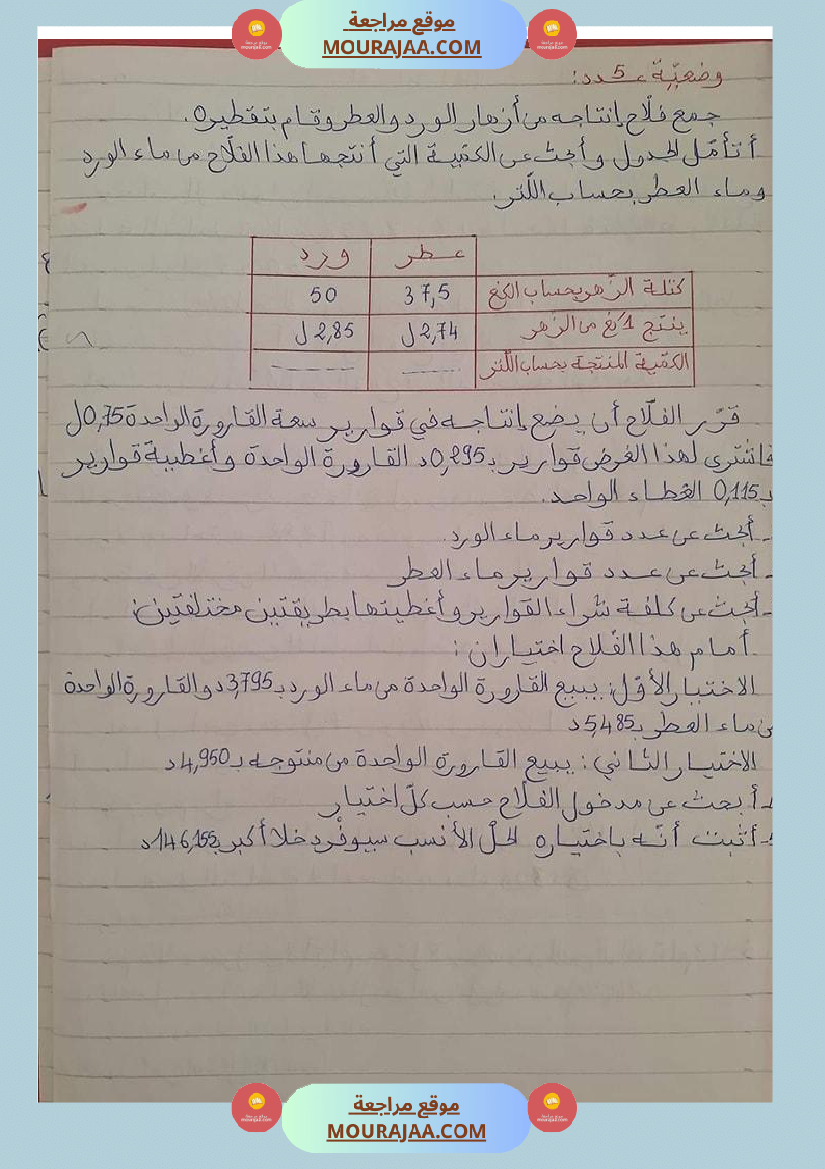 موقع مراجعة
MOURAJAA.COM
وضعيّة عـ5ـدد:
جمع فلّاح إنتاجه من أزهار الورد والعطر وقام بتقطيره.
أتأمّل الجدول وأبحث عن الكمّية التي أنتجها هذا الفلّاح من ماء الورد
وماء العطر بحساب اللّتر.
عطر ورد
كتلة الزّهر بحساب الكغ 37,5 50
ينتج 1كغ من الزّهر 2,74 ل 2,85 ل
الكمّية المنتجة بحساب اللّتر
قرّر الفلّاح أن يضع إنتاجه في قوارير سعة القارورة الواحدة 0,75ل
فاشترى لهذا الغرض قوارير بـ0,295د القارورة الواحدة وأغطية قوارير
بـ0,115 الغطاء الواحد.
- أبحث عن عدد قوارير ماء الورد.
- أبحث عن عدد قوارير ماء العطر
- أبحث عن كلفة شراء القوارير وأغطيتها بطريقتين مختلفتين:
أمام هذا الفلّاح اختياران:
الاختيار الأوّل: يبيع القارورة الواحدة من ماء الورد بـ3,795د والقارورة الواحدة
من ماء العطر بـ5,485د
الاختيار الثّاني: يبيع القارورة الواحدة من منتوجه بـ4,950د
- أبحث عن مدخول الفلّاح حسب كلّ اختيار
- أثبت أنّه باختياره الحلّ الأنسب سيوفّر دخلا أكبر بـ146,155د
موقع مراجعة
MOURAJAA.COM